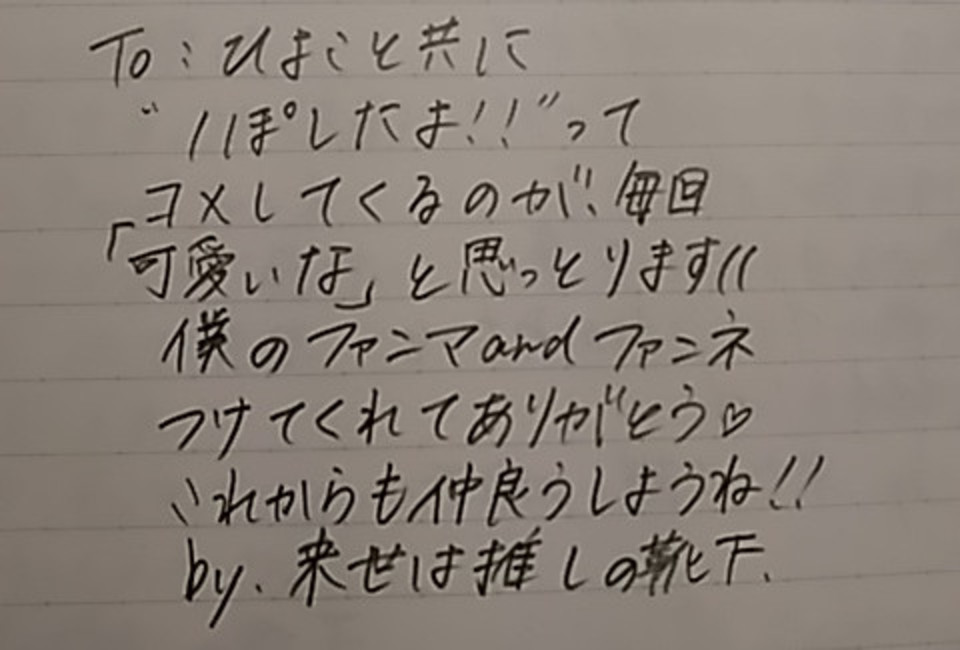 To:ひまこと共に
"いぽしたま!!"って
コメしてくるのが、毎回
「可愛いな」と思っとります((
僕のファンマandファンネ
つけてくれてありがとう♡
これからも仲良うしようね!!
by.来せは推しの靴下.